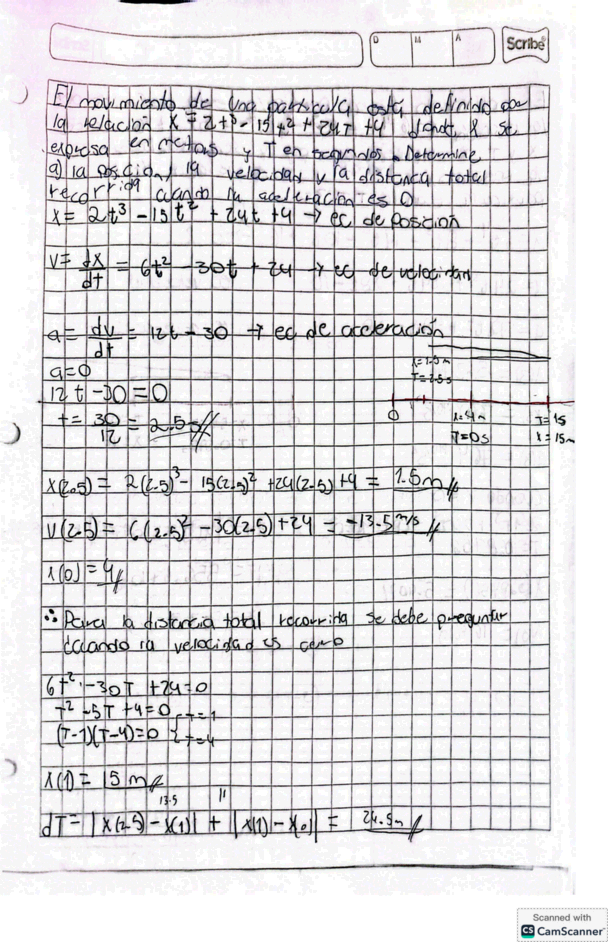 D M A Scribe
El movimiento de una particula está definido por
la relación x = 2t³ - 15t² + 24t + 4 donde x se
expresa en metros y T en segundos. Determine
a) la posicion, la velocidad y la distancia total
recorrida cuando la aceleración es 0
x = 2t³ - 15t² + 24t + 4 → ec de posición
v = dx/dt = 6t² - 30t + 24 → ec de velocidad
a = dv/dt = 12t - 30 → ec de aceleración
a=0
12t - 30 = 0
t = 30/12 = 2.5s //
x=1.5m
T=2.5s
0
x=4m
T=0s
T=1s
x=15m
x(2.5) = 2(2.5)³ - 15(2.5)² + 24(2.5) + 4 = 1.5m //
v(2.5) = 6(2.5)² - 30(2.5) + 24 = -13.5 m/s //
x(0) = 4 //
∴ Para la distancia total recorrida se debe preguntar
cuando la velocidad es cero
6t² - 30T + 24 = 0
T² - 5T + 4 = 0
(T-1)(T-4)=0 { T=1
T=4
x(1) = 15 m //
13.5 11
dT = |x(2.5) - x(1)| + |x(1) - x(0)| = 24.5m //
Scanned with
CS CamScanner